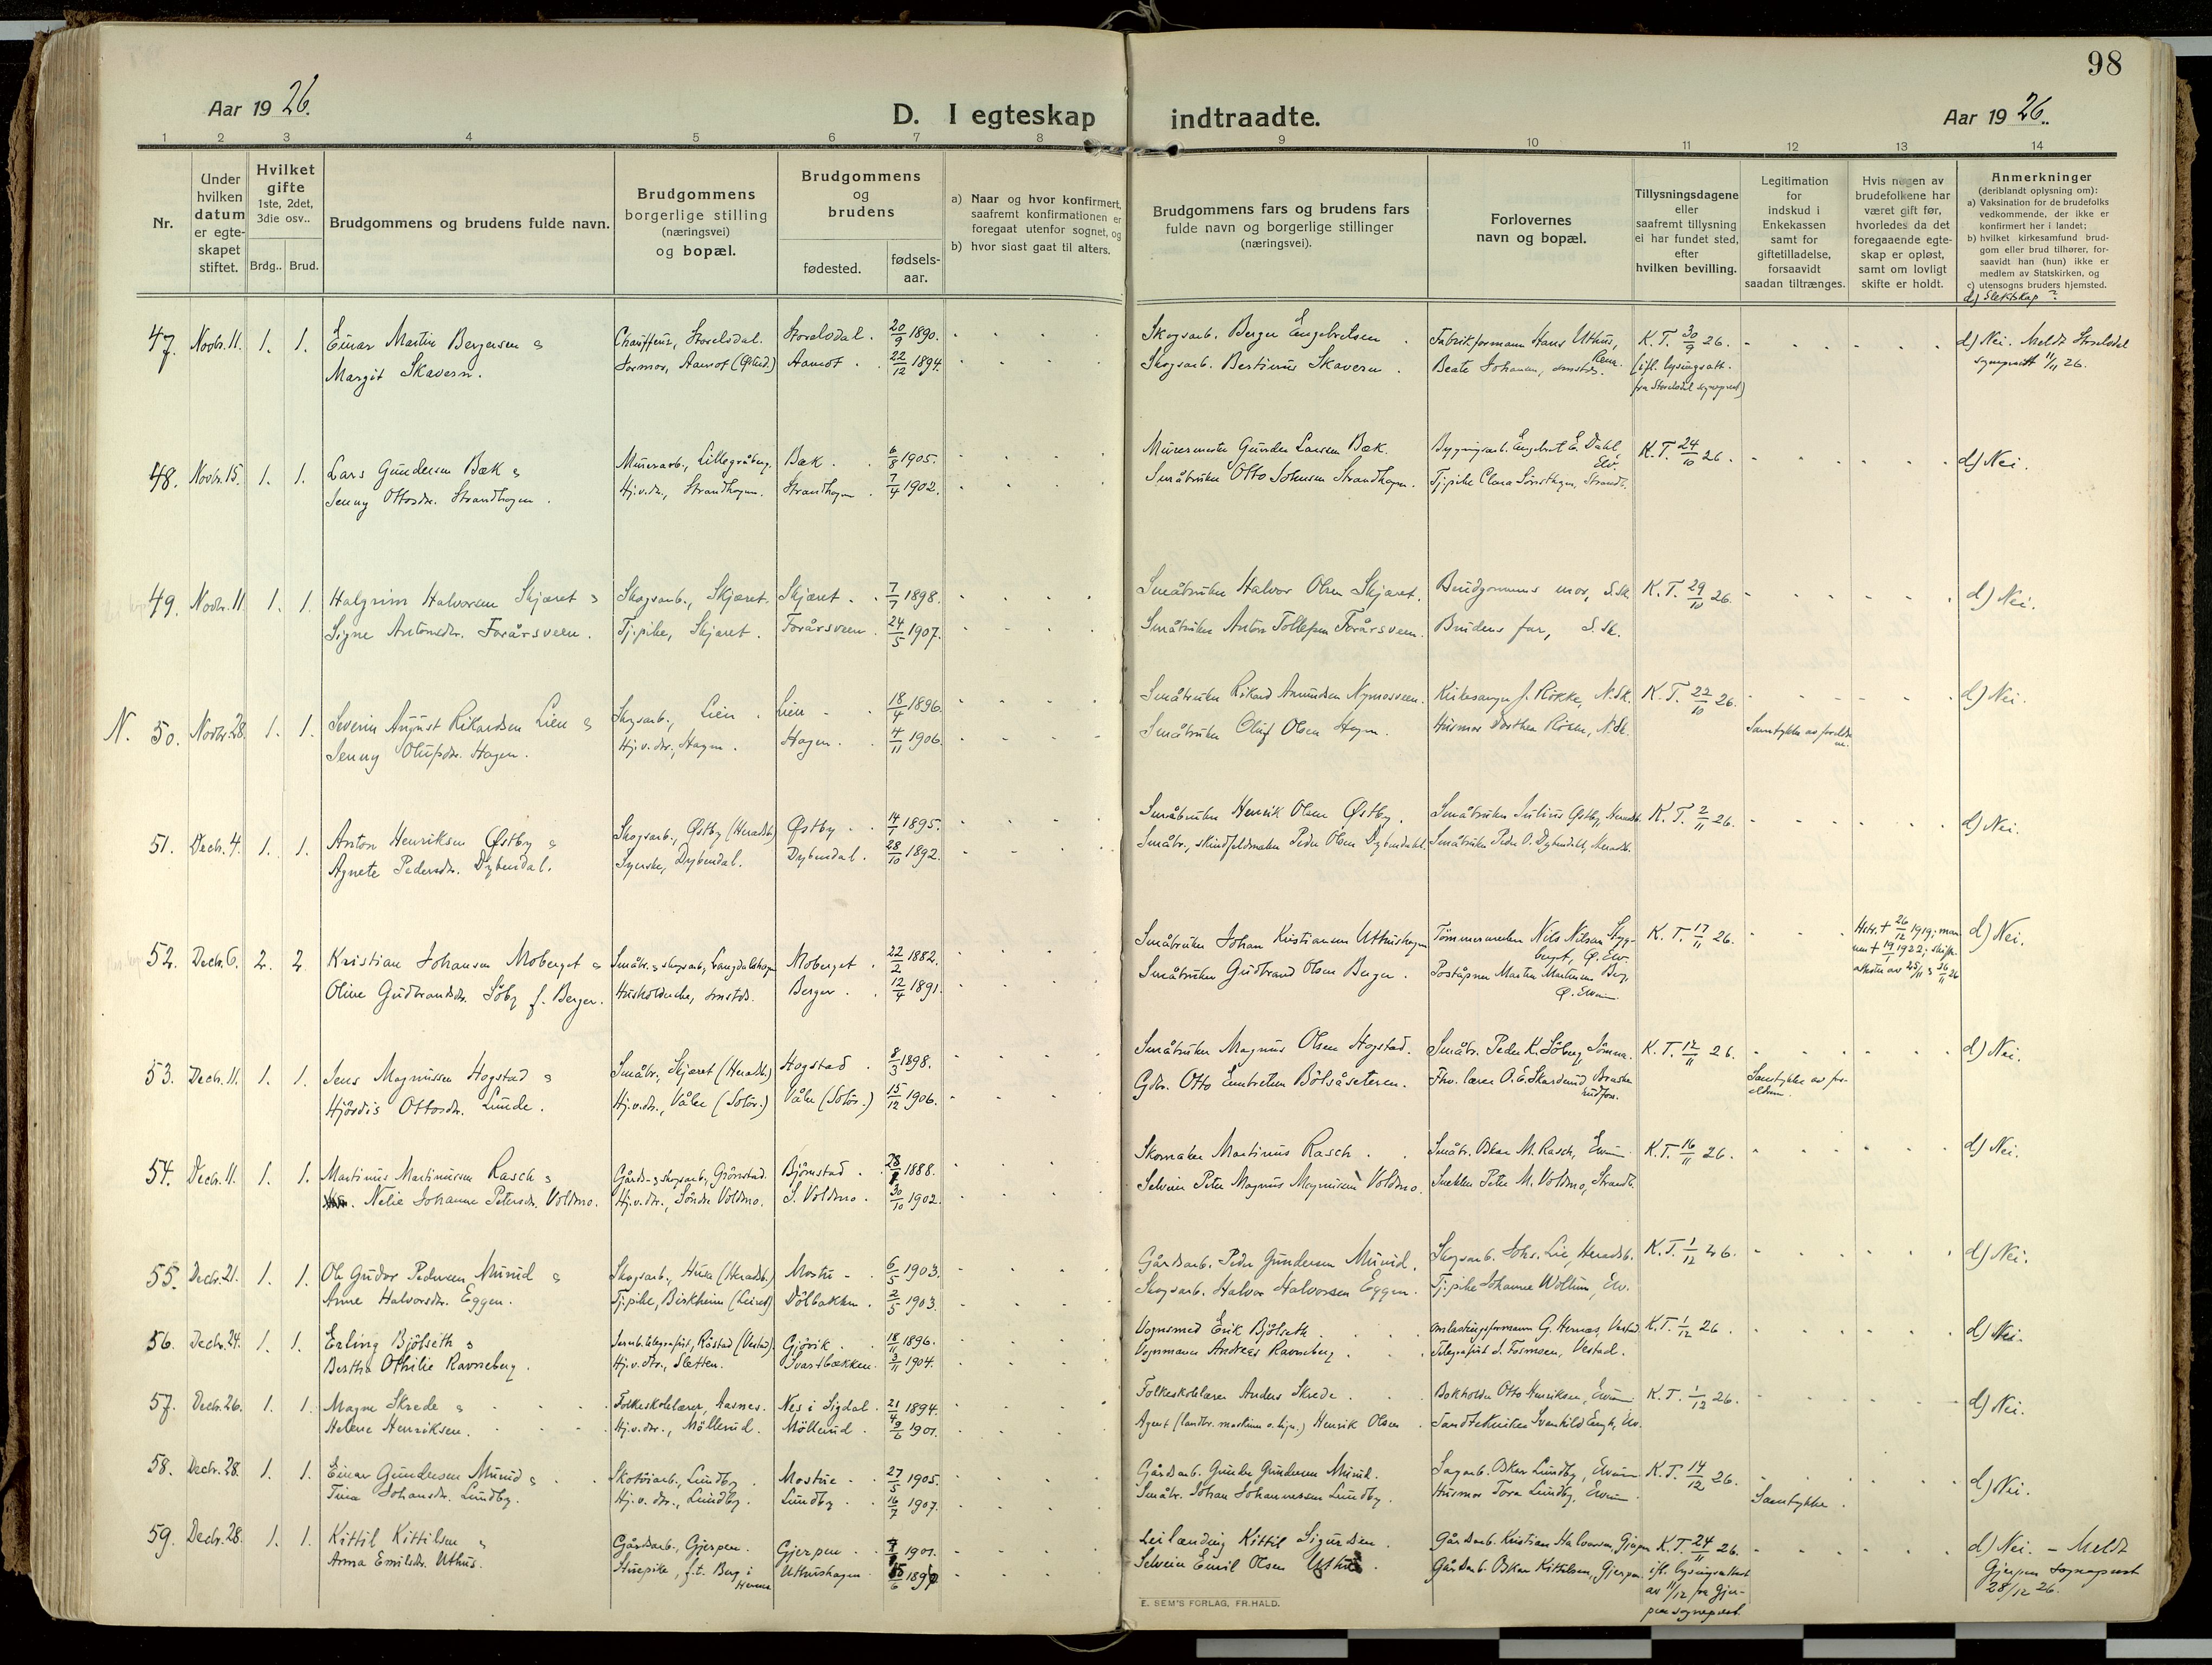 98
Aar 1926.
D. I egteskap indtraadte.
Aar 1926.
1 2 3 4 5 6 7 8 9 10 11 12 13 14
Nr.
Under hvilken datum er egte-skapet stiftet.
Hvilket gifte 1ste, 2det, 3die osv..
Brdg.. Brud.
Brudgommens og brudens fulde navn.
Brudgommens borgerlige stilling (næringsvei) og bopæl.
Brudgommens og brudens
fødested. fødsels-aar.
a) Naar og hvor konfirmert, saafremt konfirmationen er foregaat utenfor sognet, og
b) hvor sidst gaat til alters.
Brudgommens fars og brudens fars fulde navn og borgerlige stillinger (næringsvei).
Forlovernes navn og bopæl.
Tillysningsdagene eller saafremt tillysning ei har fundet sted, efter hvilken bevilling.
Legitimation for indskud i Enkekassen samt for giftetilladelse, forsaavidt saadan tiltrænges.
Hvis nogen av brudefolkene har været gift før, hvorledes da det foregaaende egte-skap er opløst, samt om lovligt skifte er holdt.
Anmerkninger (deriblandt oplysning om):
a) Vaksination for de brudefolks vedkommende, der ikke er konfirmert her i landet;
b) hvilket kirkesamfund brud-gom eller brud tilhører, for-saavidt han (hun) ikke er medlem av Statskirken, og
c) utensogns bruders hjemsted.
d) Slektskap?
47. Novbr. 11. 1. 1. Einar Martin Bergersen & Chauffeur, Storelvdal. Storelvdal. 20/9 1890. Skogsarb. Berger Engebretsen. Fabrikformann Hans Uthus, Rena. K. T. 30/9 26. d) Nei. Meldt Storelvdal
Margit Skavern. Aamot 22/12 1894. Skogsarb. Bertinus Skavern. Beate Johansen, smstds. (ifl. lysingsatt. fra Storelvdal sogneprest) sogneprest 11/11 26.
48. Novbr. 15. 1. 1. Lars Gundersen Bæk & Murerarb., Lillegråberg. Bæk. 6/8 1905. Murermester Gunder Larsen Bæk. Bygningsarb. Engebret E. Dahl, Elv. K. T. 24/10 26. d) Nei.
Jenny Ottosdr. Strandhagen. Hj.v.dr., Strandhagen. Strandhagen 7/4 1902. Småbruker Otto Johnsen Strandhagen. Tj.pike Clara
49. Novbr. 11 1. 1. Halgrim Halvorsen Skjæret & Skogsarb., Skjæret. Skjæret. 7/7 1898. Småbruker Halvor Olsen Skjæret. Brudgommens mor, S.Sk. K. T. 29/10 26. d) Nei.
Signe Antonsdr. Forårsveen. Tj.pike, Skjæret. Forårsveen 24/5 1907. Småbruker Anton Tollefsen Forårsveen. Brudens far, S. Sk.
N. 50. Novbr. 28. 1. 1. Severin August Rikardsen Lien & Skogsarb., Lien. Lien 18/4 1896. Småbruker Rikard Amundsen Nymosveen. Kirkesanger J. Rokke, N.Sk. K. T. 22/10 26. d) Nei.
Jenny Olufsdr. Hagen. Hj.v.dr., Hagen. Hagen. 4/11 1906. Småbruker Oluf Olsen Hagen. Husmor Dorthea N.Sk. Samtykke av foreldrene.
51. Decbr. 4. 1. 1. Anton Henriksen Østby & Skogsarb., Østby (Heradsb.) Østby. 14/1 1895. Småbruker Henrik Olsen Østby. Småbruker Julius Østby, Heradsb. K. T. 2/11 26. d) Nei.
Agnete Pedersdr. Dybendal. Syerske, Dybendal. Dybendal. 28/10 1892. Småbr., skindfeldmaker Peder Olsen Dybendahl. Småbruker Peder O. Dybendahl, Heradsb.
52. Decbr. 6. 2. 2. Kristian Johansen Moberget & Småbr. & skogsarb., Langdalshagen Moberget. 22/2 1882. Småbruker Johan Kristiansen Uthushagen Tømmermerker Nils Nilsen Stygberget, Ø. Elv. K. T. 17/11 26. Hstr. † 26/12 1919; mannen † 19/1 1922; skifteattester av 25/11 & 26/11 26 d) Nei.
Oline Gudbrandsdr. Söby f. Berger. Husholderske, smstds. Berger. 12/4 1891. Småbruker Gudbrand Olsen Berger. Poståpner Martin Martinsen Berg, Ø. Elverum
53. Decbr. 11. 1. 1. Jens Magnussen Hogstad & Småbr., Skjæret (Heradsb.) Hogstad. 8/3 1898. Småbruker Magnus Olsen Hogstad. Småbr. Peder K. Söberg, Sömna. K. T. 12/11 26. d) Nei.
Hjördis Ottosdr. Linde. Hj.v.dr., Våler (Solör.) Våler (Solör.) 15/12 1906. Gbr. Otto Embretsen Bölsåseteren. Fhv. lærer O. E. Skarderud, Samtykke av foreldrene.
54. Decbr. 11. 1. 1. Martinus Martinussen Rasch & Gårds- & skogsarb., Grönstad. Björnstad. 28/8 1888. Skomaker Martinus Rasch. Småbr. Oskar M. Rasch, Elverum. K. T. 16/11 26. d) Nei.
Nelie Johanne Petersdr. Voldmo. Hj.v.dr., Söndre Voldmo. S. Voldmo. 30/10 1902. Selveier Peter Magnus Magnussen Voldmo. Snekker Peter M. Voldmo, Strandb.
55. Decbr. 21. 1. 1. Ole Gudor Pedersen Munid & Skogsarb., (Heradsb.) Mostu. 6/5 1903. Gårdsarb. Peder Gundersen Munid. Skogsarb. Johs. Lie, Heradsb. K. T. 1/12 26. d) Nei.
Anne Halvorsdr. Eggen. Tj.pike, Birkheim (Leiret) Dölbakken. 2/5 1903. Skogsarb. Halvor Halvorsen Eggen. Tj.pike Johanne Wollum, Elv.
56. Decbr. 24. 1. 1. Erling Bjölseth & Jernb.telegrafist, Röstad (Vestad). Gjövik. 18/11 1896. Vognsmed Erik Bjölseth. Omlastningsformann G. Hernæs, Vestad. K. T. 1/12 26. d) Nei.
Berthia Othilie Ravneberg. Hj.v.dr., Sletten. Svartbækken. 3/11 1904. Vognmann Andreas Ravneberg. Telegrafist S. Fosmoen, Vestad.
57. Decbr. 26. 1. 1. Magne Skrede & Folkeskolelærer, Aasnes. Nes i Sigdal. 21/4 1894. Folkeskolelærer Anders Skrede. Bokholder Otto Henriksen, Elverum. K. T. 1/12 26. d) Nei.
Helene Henriksen. Hj.v.dr., Möllerud. Möllerud. 9/6 1901. Agent (landbr. maskiner o. lign.) Henrik Olsen. Tandtekniker Svanhild Engh, Elv.
58. Decbr. 28. 1. 1. Einar Gundersen Munid & Skotöiarb., Lundby. Mostue. 27/5 1905. Gårdsarb. Gunder Gundersen Munid. Sagarb. Oskar Lundby, Elverum K. T. 14/12 26. d) Nei.
Tina Johansdr. Lundby. Hj.v.dr., Lundby. Lundby. 16/7 1907. Småbr. Johan Johannessen Lundby. Husmor Tora Lundby, Elverum. Samtykke.
59. Decbr. 28. 1. 1. Kittil Kittilsen & Gårdsarb., Gjerpen. Gjerpen. 1901. Leilænding Kittil Sigurdsen. Gårdsarb. Kristian Halvorsen, Gjerpen K. T. 24/11 26. d) Nei. – Meldt
Anna Emilsdr. Uthus. Stuepike, f.t. Berg i Uthushagen Selveier Emil Olsen Uthus. Gårdsarb. Oskar Kittilsen, Gjerpen. ifl. lysingsattest av 11/12 fra Gjerpen sogneprest. Gjerpen sogneprest 28/12 26.
E. SEM'S FORLAG, FR.HALD.